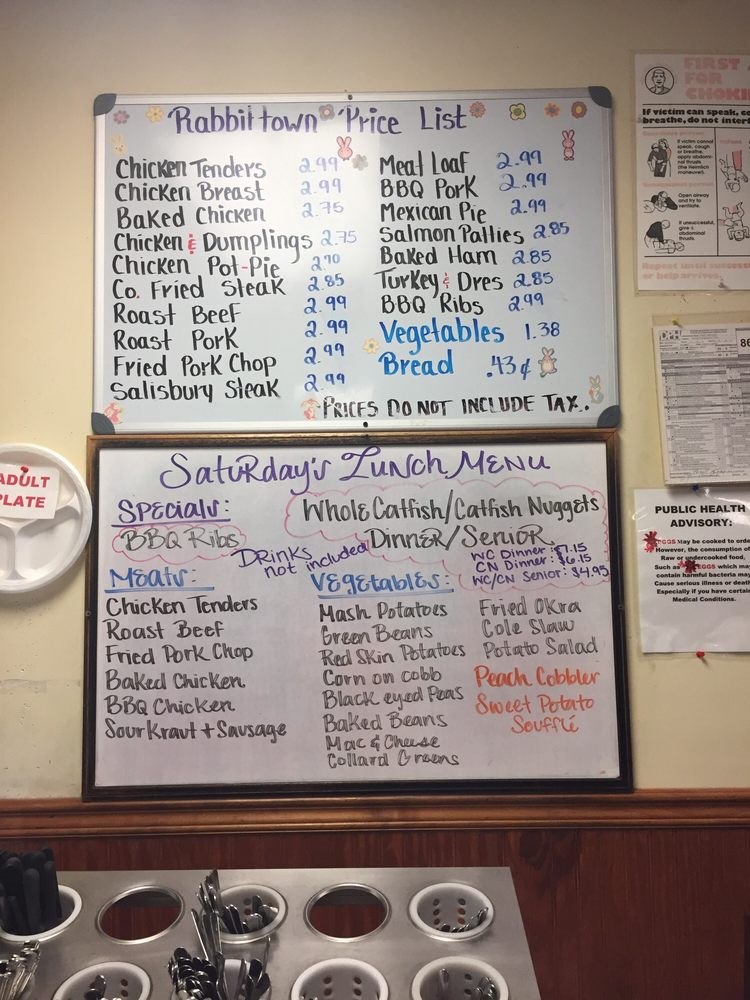 Rabbittown Price List
Chicken Tenders 2.99
Chicken Breast 2.99
Baked Chicken 2.75
Chicken & Dumplings 2.75
Chicken Pot-Pie 2.70
Co. Fried Steak 2.85
Roast Beef 2.99
Roast Pork 2.99
Fried Pork Chop 2.99
Salisbury Steak 2.99
Meat Loaf 2.99
BBQ Pork 2.99
Mexican Pie 2.99
Salmon Patties 2.85
Baked Ham 2.85
Turkey & Dres 2.85
BBQ Ribs 2.99
Vegetables 1.38
Bread .43¢
PRICES DO NOT INCLUDE TAX.
Saturday's Lunch Menu
Specials:
BBQ Ribs
Whole Catfish/Catfish Nuggets
Dinner/Senior
WC Dinner: $7.15
CN Dinner: $6.15
WC/CN Senior: $4.95
Drinks
not included
Meats:
Chicken Tenders
Roast Beef
Fried Pork Chop
Baked Chicken
BBQ Chicken
Sour Kraut + Sausage
Vegetables:
Mash Potatoes
Green Beans
Red Skin Potatoes
Corn on cobb
Black eyed Peas
Baked Beans
Mac & Cheese
Collard Greens
Fried Okra
Cole Slaw
Potato Salad
Peach Cobbler
Sweet Potato
Soufflé
ADULT
PLATE
FIRST
FOR
CHOKI
If victim can speak, co
breathe, do not interf
If victim
cannot speak,
cough
or breathe,
apply abdomi-
nal thrusts
(the Heimlich
maneuver).
Open airway
and try to
ventilate.
If unsuccessful,
give
abdominal
thrusts.
Repeat until success
or help arrives.
PUBLIC HEALTH
ADVISORY:
EGGS May be cooked to orde
However, the consumption of
Raw or undercooked food,
Such as EGGS which may
contain harmful bacteria may
Cause serious illness or death
Especially if you have certain
Medical Conditions.